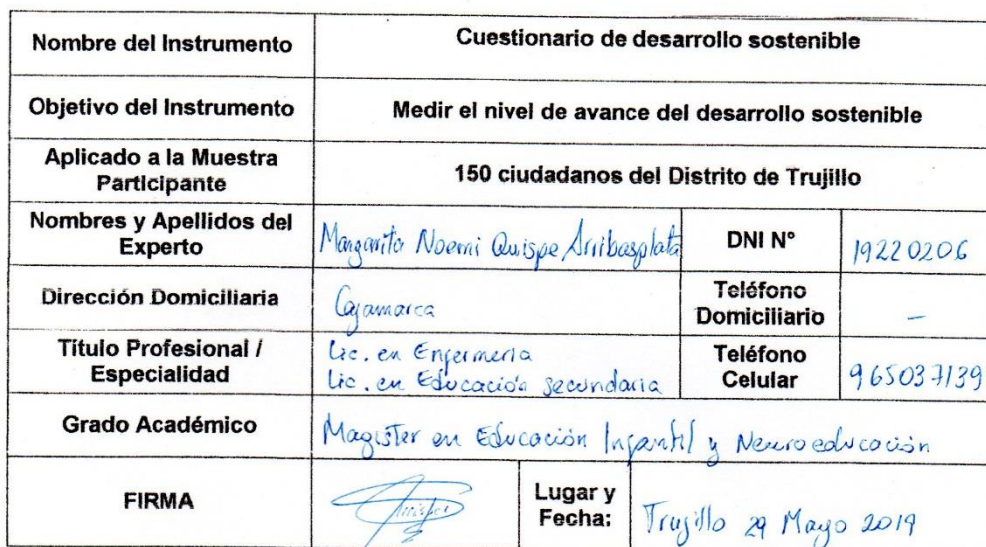 Nombre del Instrumento
Cuestionario de desarrollo sostenible
Objetivo del Instrumento
Medir el nivel de avance del desarrollo sostenible
Aplicado a la Muestra
Participante
150 ciudadanos del Distrito de Trujillo
Nombres y Apellidos del
Experto
Margarita Noemi Quispe Arribasplata
DNI N°
19220206
Dirección Domiciliaria
Cajamarca
Teléfono
Domiciliario
–
Título Profesional /
Especialidad
Lic. en Enfermería
Lic. en Educación secundaria
Teléfono
Celular
965037139
Grado Académico
Magister en Educación Infantil y Neuroeducación
FIRMA
Lugar y
Fecha:
Trujillo 29 Mayo 2019